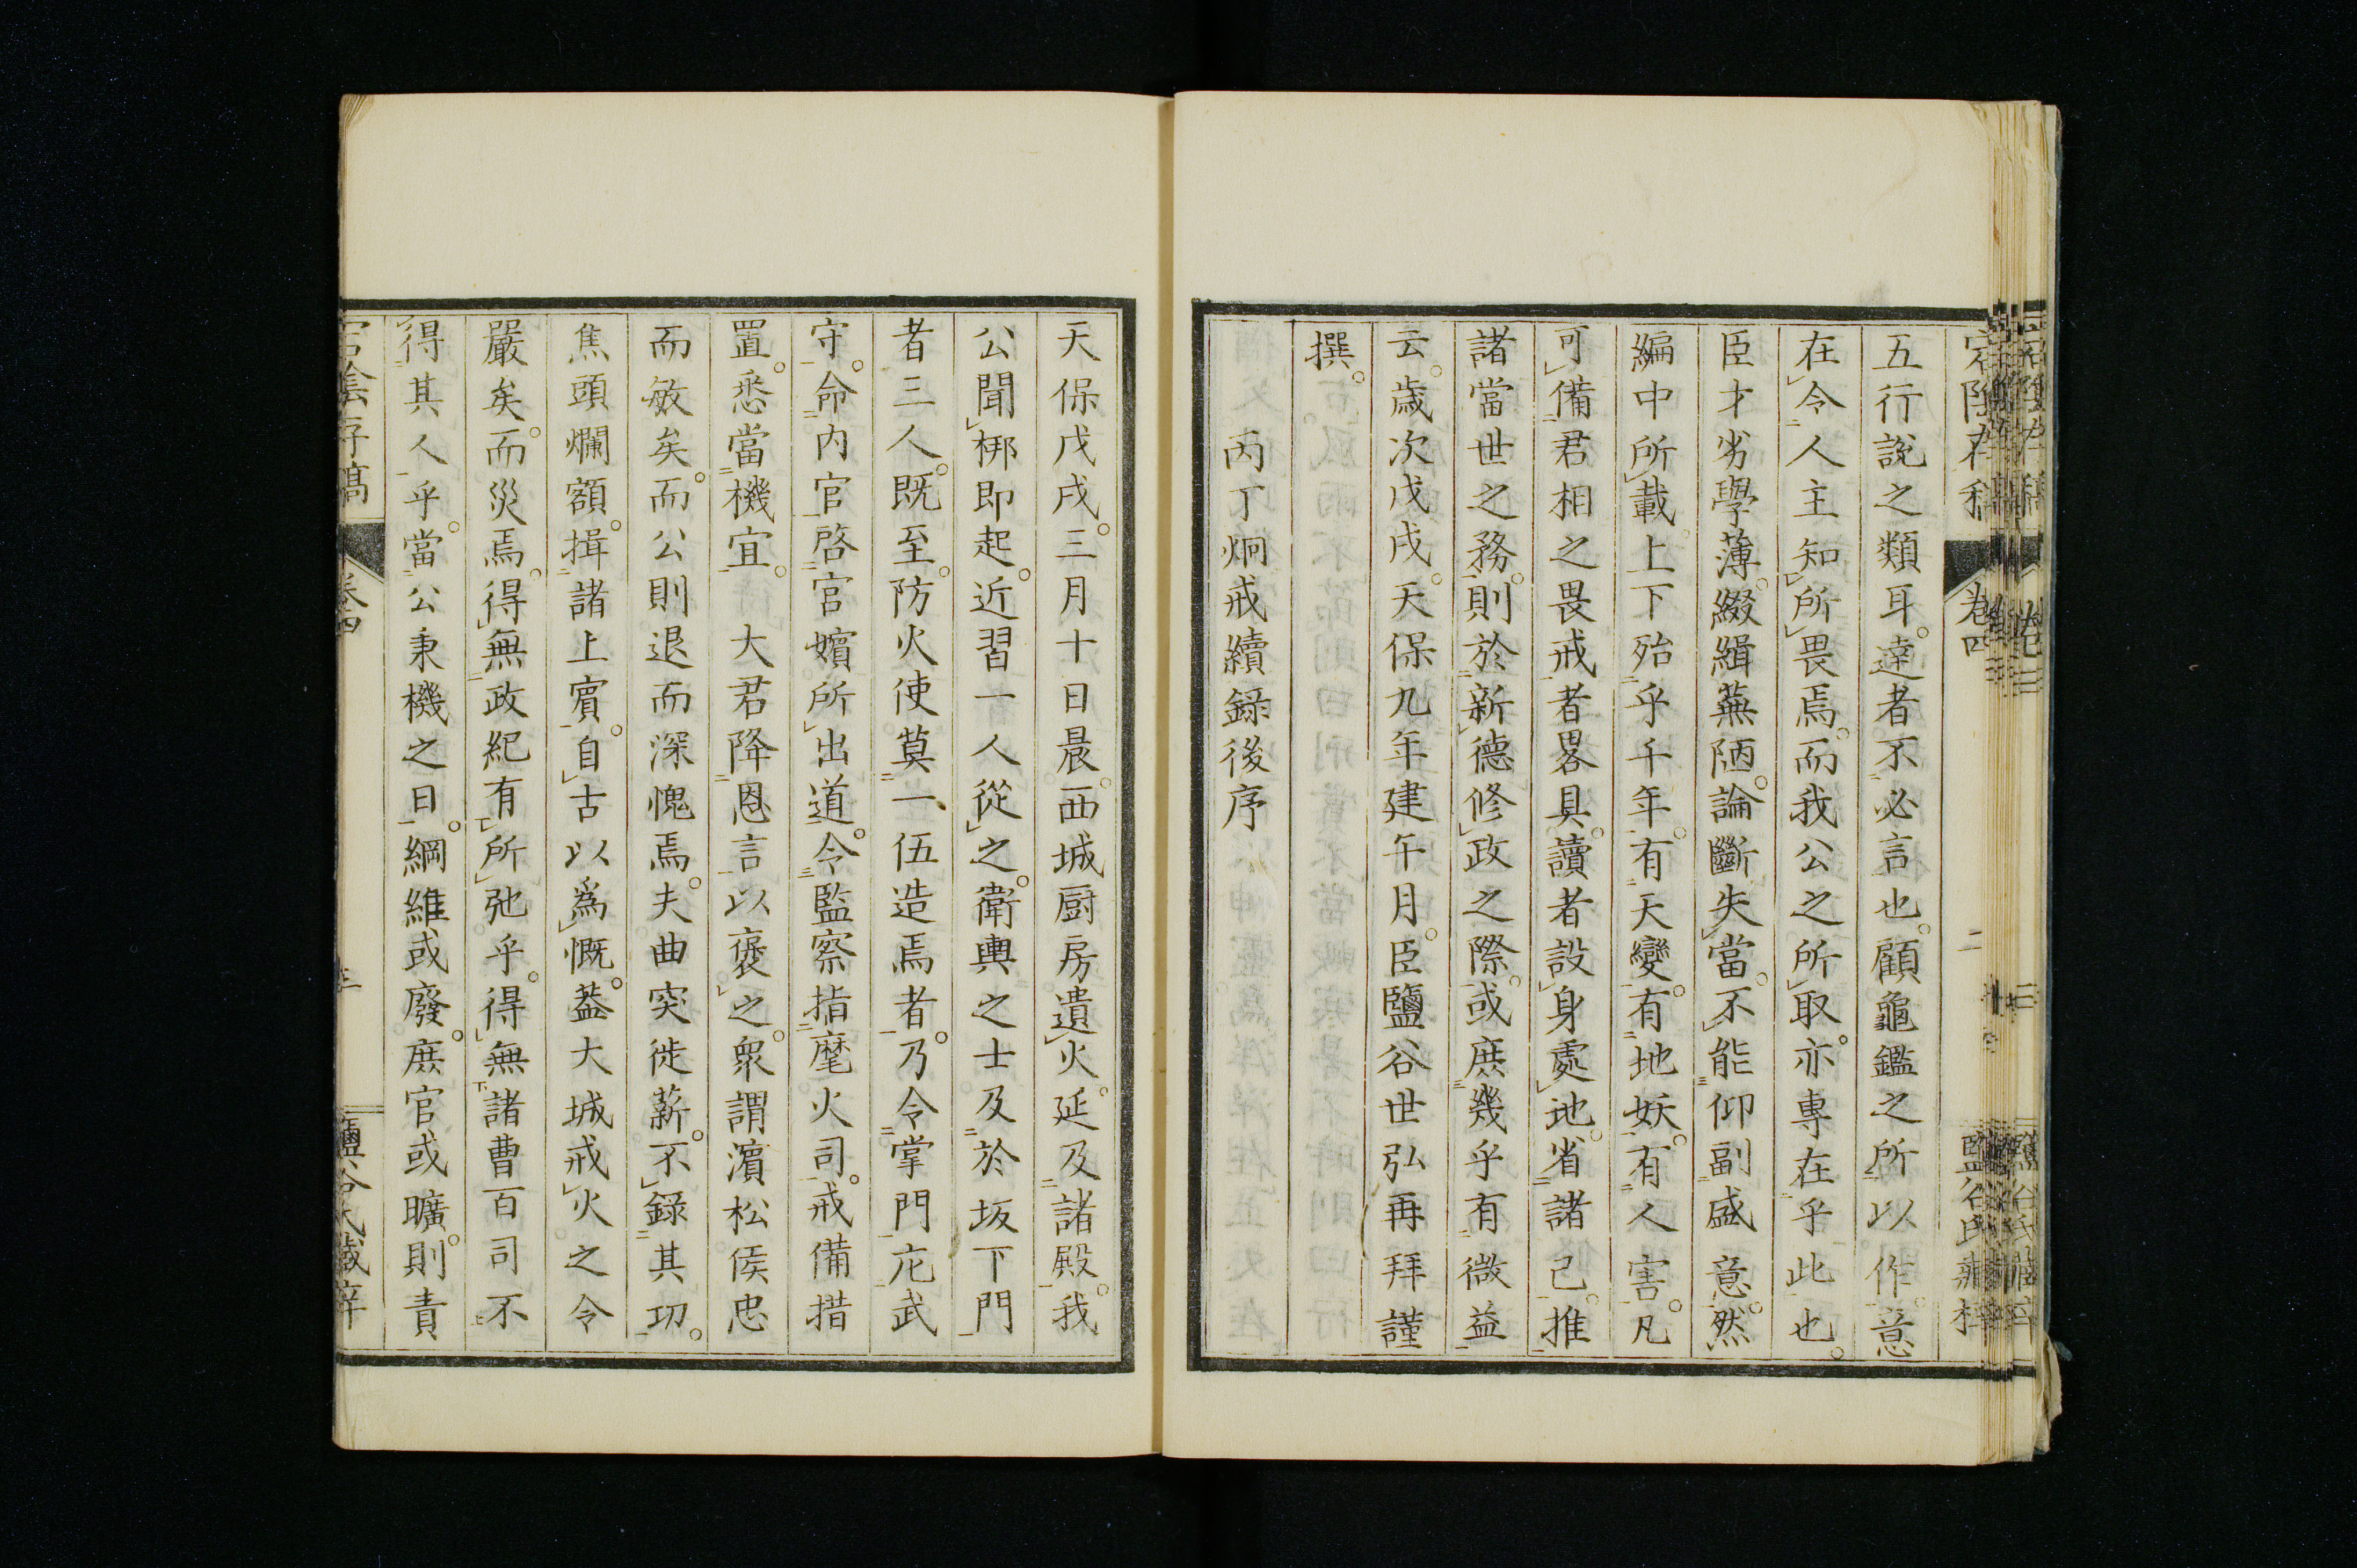 五行説之類耳。達者不必言也。顧龜鑑之所以作意
在令人主知所畏焉。而我公之所取。亦專在乎此也。
臣才劣學薄。綴緝蕪陋。論斷失當。不能仰副盛意。然
編中所載。上下殆乎千年。有天變。有地妖。有人害。凡
可備君相之畏戒者畧具。讀者設身處地。省諸己。推
諸當世之務。則於新德修政之際。或庶幾乎有微益
云。歳次戊戌。天保九年建午月。臣鹽谷世弘再拜謹
撰。
丙丁炯戒續録後序
天保戊戌。三月十日晨。西城厨房遺火。延及諸殿。我
公聞梆即起。近習一人從之。衛輿之士及於坂下門
者三人。既至。防火使莫一伍造焉者。乃令掌門庀武
守。命内官啓宮嬪所出道。令監察指麾火司。戒備措
置。悉當機宜。大君降恩言以褒之。衆謂濵松侯忠
而敏矣。而公則退而深愧焉。夫曲突徙薪。不録其功。
焦頭爛額。揖諸上賓。自古以爲慨。葢大城戒火之令
嚴矣。而災焉。得無政紀有所弛乎。得無諸曹百司不
得其人乎。當公秉機之日。綱維或廢。庶官或曠。則責
宕陰存稿 卷四 三 鹽谷氏藏梓